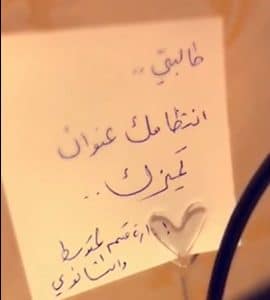 طالبتي ..
انتظامك عنوان
تميزك ..
إدارة قسم المتوسط
والثانوي